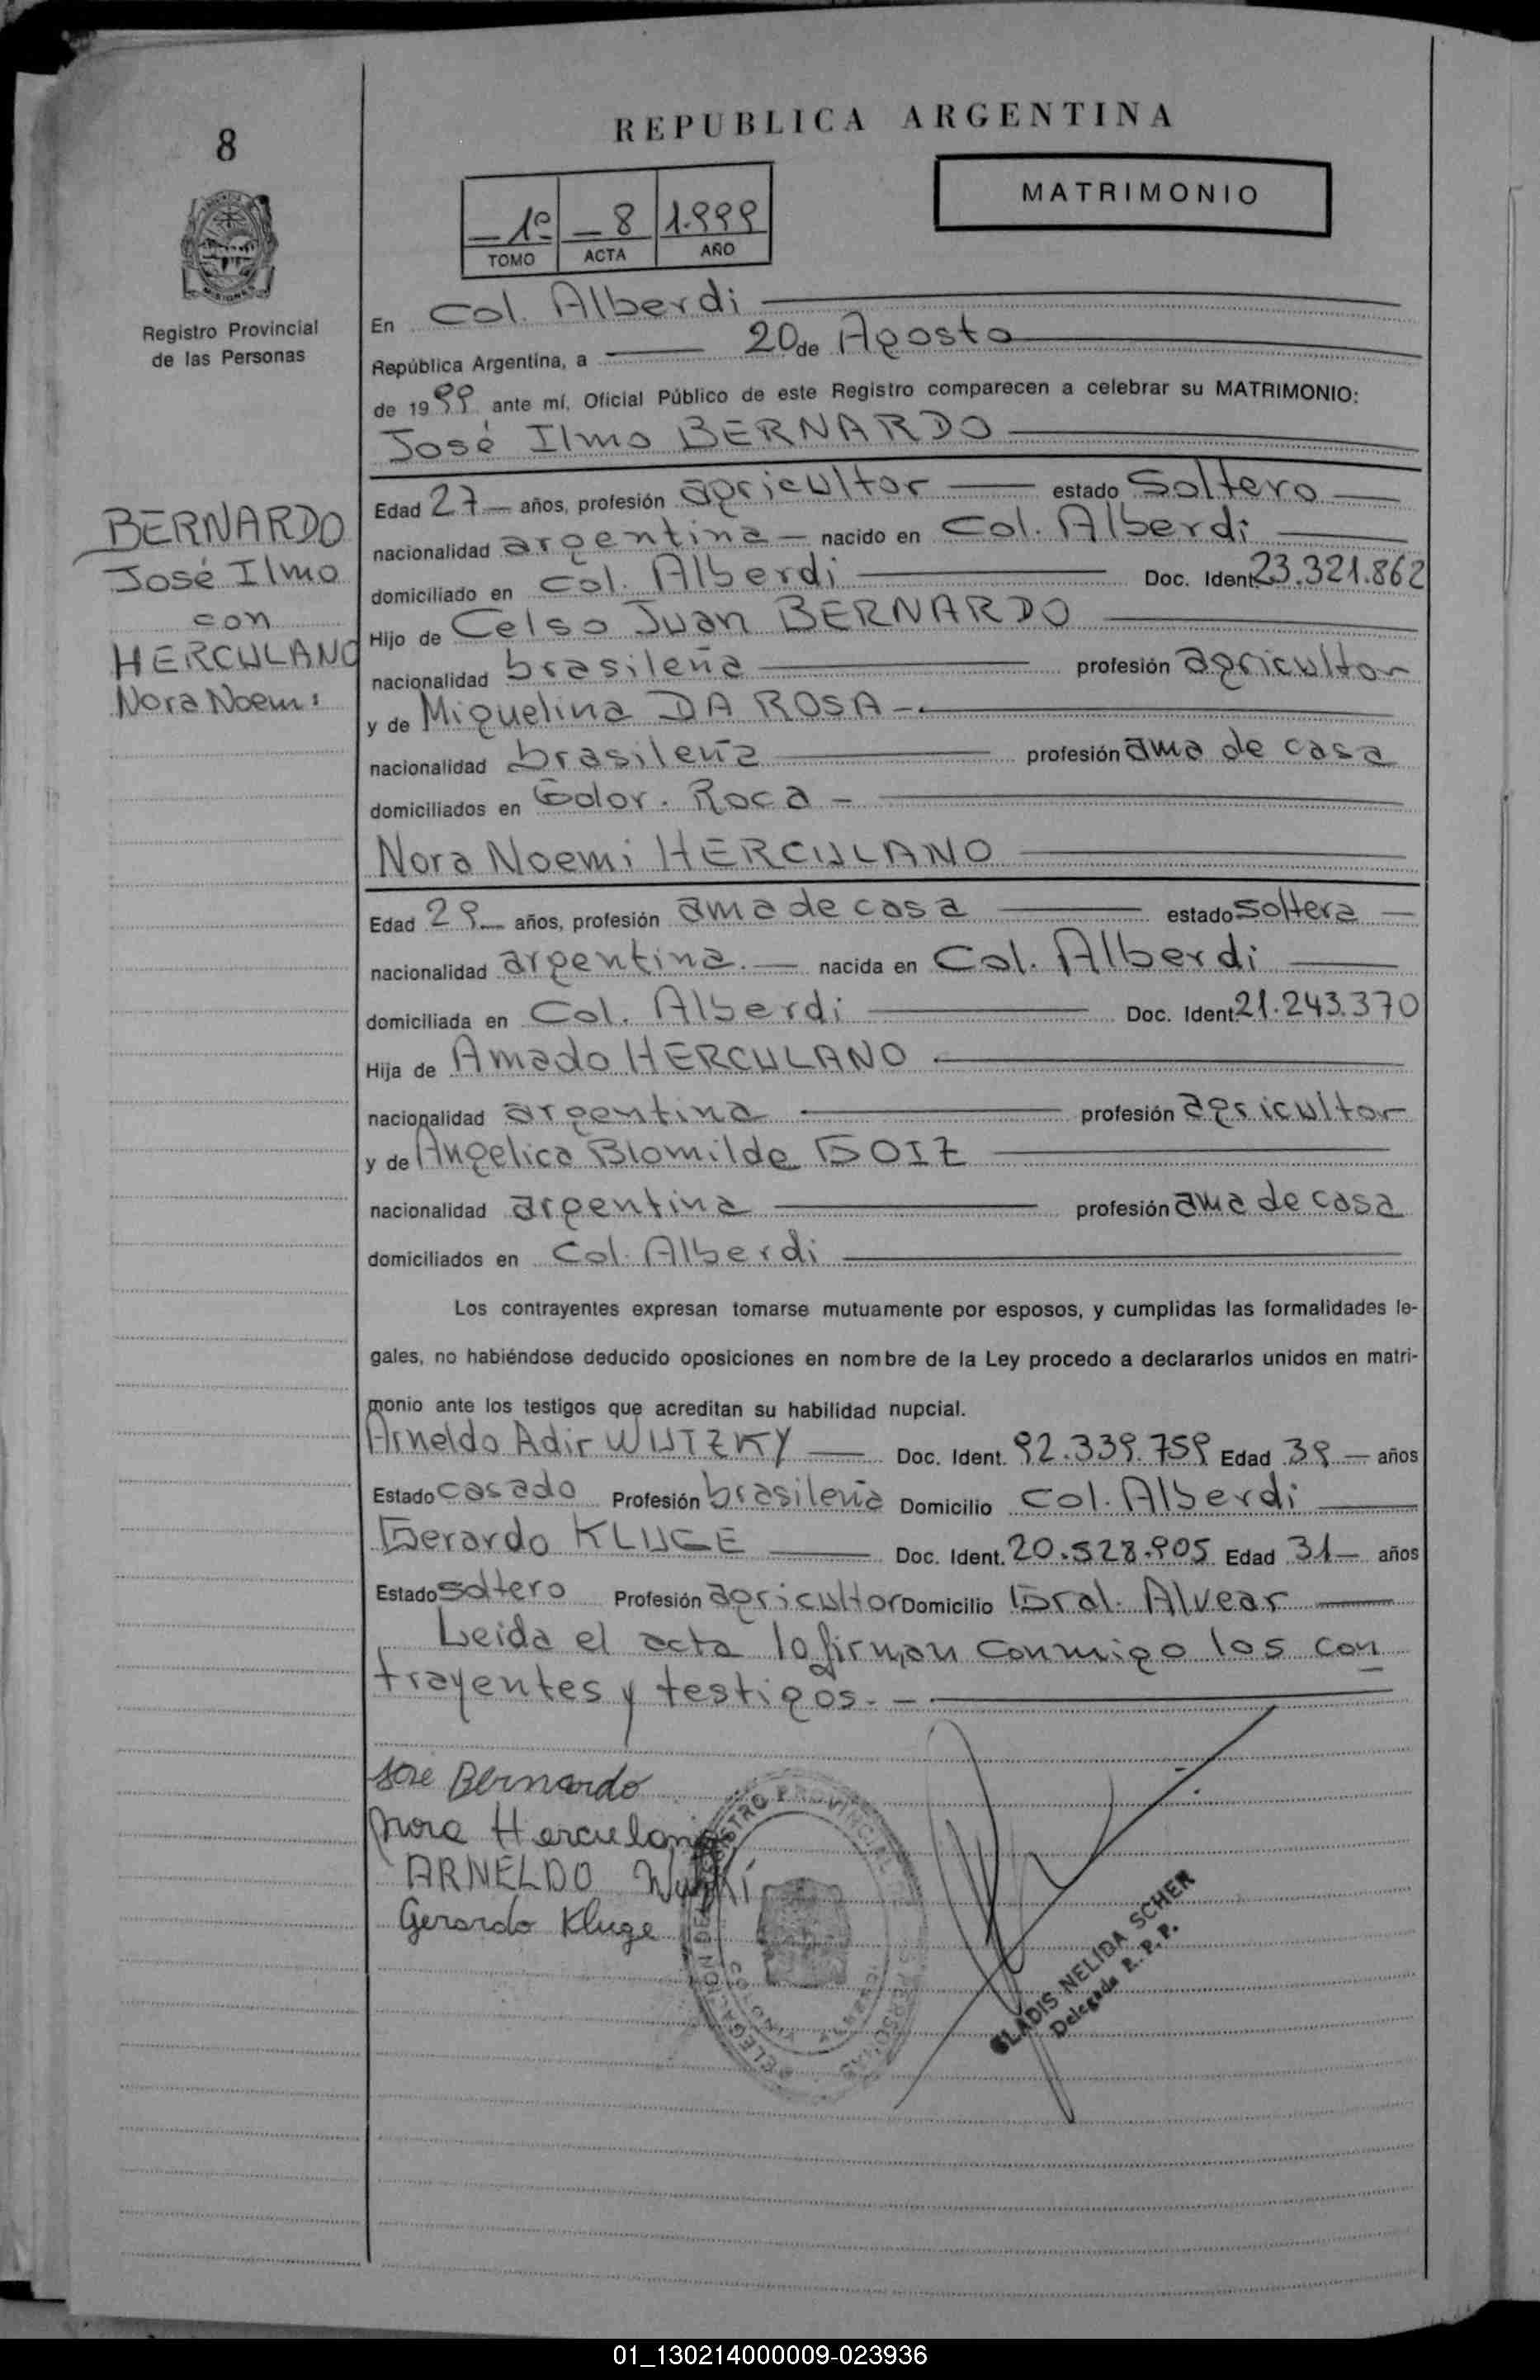 8
REPUBLICA ARGENTINA
MATRIMONIO
1º 8 1.999
TOMO ACTA AÑO
Registro Provincial
de las Personas
En Col. Alberdi
República Argentina, a 20 de Agosto
de 1999 ante mí, Oficial Público de este Registro comparecen a celebrar su MATRIMONIO:
José Ilmo BERNARDO
BERNARDO
José Ilmo
con
HERCULANO
Nora Noemi
Edad 27 años, profesión agricultor estado Soltero
nacionalidad argentina nacido en Col. Alberdi
domiciliado en Col. Alberdi Doc. Ident. 23.321.862
Hijo de Celso Juan BERNARDO
nacionalidad brasileña profesión agricultor
y de Miguelina DA ROSA
nacionalidad brasileña profesión ama de casa
domiciliados en Gdor. Roca
Nora Noemi HERCULANO
Edad 29 años, profesión ama de casa estado soltera
nacionalidad argentina nacida en Col. Alberdi
domiciliada en Col. Alberdi Doc. Ident. 21.243.370
Hija de Amado HERCULANO
nacionalidad argentina profesión agricultor
y de Angelica Blomilde GOIZ
nacionalidad argentina profesión ama de casa
domiciliados en Col. Alberdi
Los contrayentes expresan tomarse mutuamente por esposos, y cumplidas las formalidades le-
gales, no habiéndose deducido oposiciones en nombre de la Ley procedo a declararlos unidos en matri-
monio ante los testigos que acreditan su habilidad nupcial.
Arneldo Adir WUTZKY Doc. Ident. 92.339.759 Edad 39 años
Estado casado Profesión brasileña Domicilio Col. Alberdi
Gerardo KLUGE Doc. Ident. 20.528.905 Edad 31 años
Estado soltero Profesión agricultor Domicilio Gral. Alvear
Leida el acta la firman conmigo los con
trayentes y testigos.
José Bernardo
Nora Herculano
ARNELDO
Gerardo Kluge
GLADIS NELIDA SCHER
Delegada R. P. P.
01_130214000009-023936